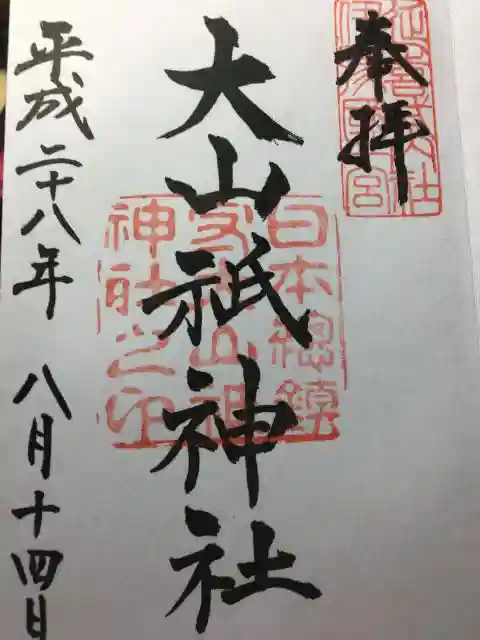 奉拝
大山祇神社
日本総鎮
神社之印
平成二十八年 八月十四日